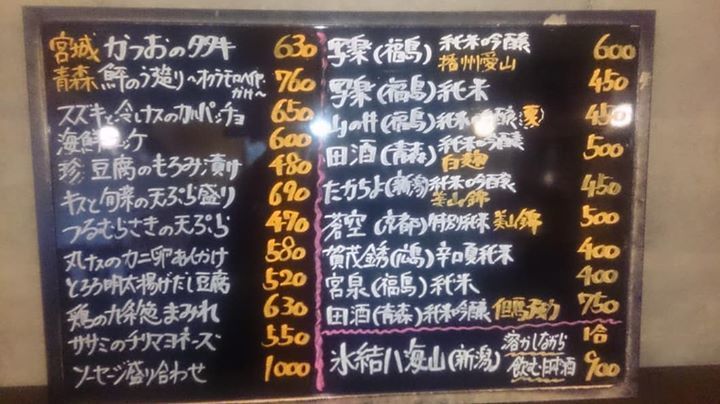 宮城 かつおのタタキ 630
青森 鮃のう造り〜わさびドレッシング 760
スズキと冷しナスのカルパッチョ 650
海鮮 600
珍 豆腐のもろみ漬け 480
キスと旬菜の天ぷら盛り 690
つるむらさきの天ぷら 470
丸ナスのカニ卵あんかけ 580
とろろ明太揚げだし豆腐 520
鶏の九条葱まみれ 630
ササミのチリマヨネーズ 550
ソーセージ盛り合わせ 1000
写楽(福島)純米吟醸 播州愛山 600
写楽(福島)純米 450
山の井(福島)純米吟醸(夏) 450
田酒(青森)純米吟醸 白麹 500
たかちよ(新潟)純米吟醸 美山錦 450
蒼空(京都)特別純米 美山錦 500
賀茂錦(広島)辛口夏純米 400
宮泉(福島)純米 400
田酒(青森)純米吟醸 但馬強力 750
氷結八海山(新潟) 溶かしながら飲む日本酒 1合 900